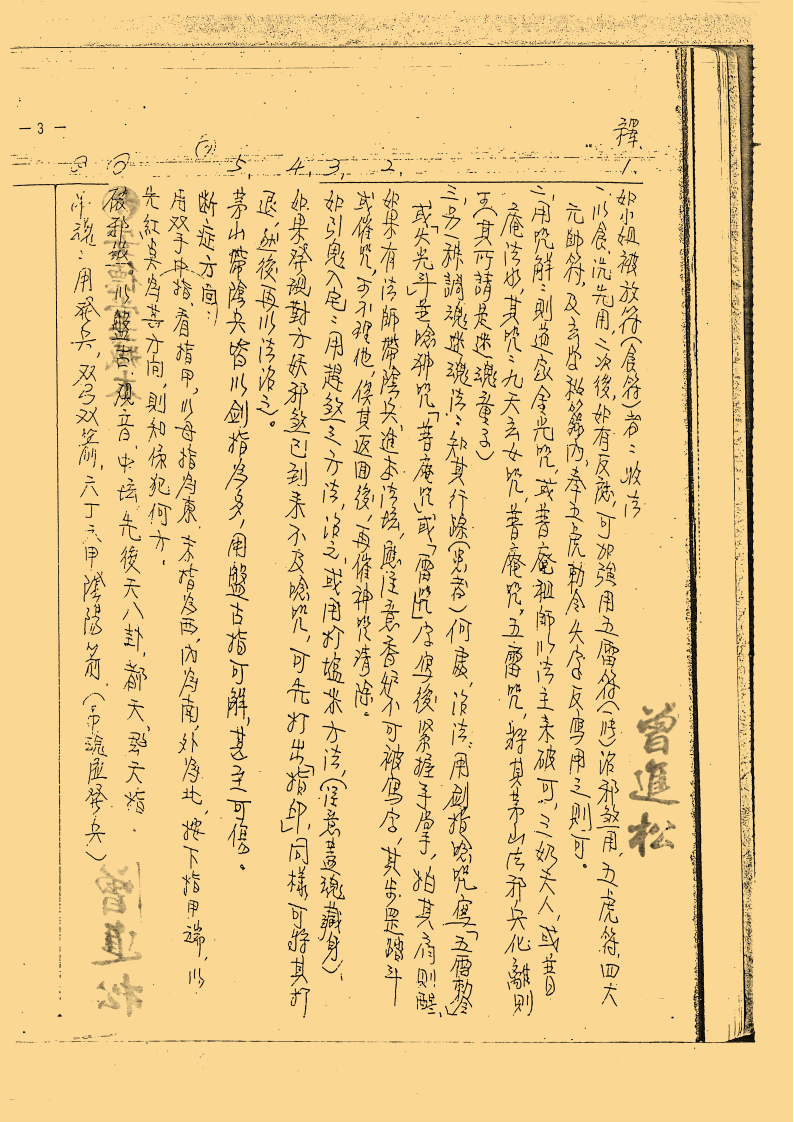 — 3 —
釋
1. 如小姐被放符(食符)者：收法
一、以食、洗先用，二次後，如有反應，可加強用五雷符(一時)治邪煞用，五虎符，四大
元帥符，及玄笈秘籙內，奉五虎勅令失字反寫用之則可。
二、用咒解：則道家金光咒，或普庵祖師以法主來破可，三奶夫人，或普
庵法水，其咒：九天玄女咒，普庵咒，五雷咒，將其茅山法邪兵化離則
玉(其所請是迷魂童子)
三、另一種調魂迷魂法：知其行踪(患者)何處，治法：用劍指唸咒寫「五雷勅令」
或「火光斗」並唸神咒「普庵咒」或「雷咒」字寫後緊握手掌，拍其肩則醒，
2. 如果有法師帶陰兵進本法坛，應注意香爐不可被寫字，其步罡踏斗
或催咒，可不理他，俟其返回後，再催神咒清除。
3. 如引鬼入宅：用趕煞之方法，治之，或用打 方法，(注意蓋魂藏身)；
4. 如果發現對方妖邪煞已到來不及唸咒，可先打出「指印」，同樣可將其打
退，然後再以法治之。
5. 茅山帶陰兵皆以劍指為多，用盤古指可解，甚至可傷。
(一) 断症方向：
用双手中指，看指甲，以母指為東，末指為西，內為南，外為北，按下指甲端，以
先紅點為其方向，則知係犯何方。
(二) 破邪煞：以盤古、观音、中坛、先後天八卦，都天、 天指．
(三) 吊魂：用發兵，双弓双箭，六丁六甲陰陽箭．(吊魂應發兵)
曾進松
曾進松